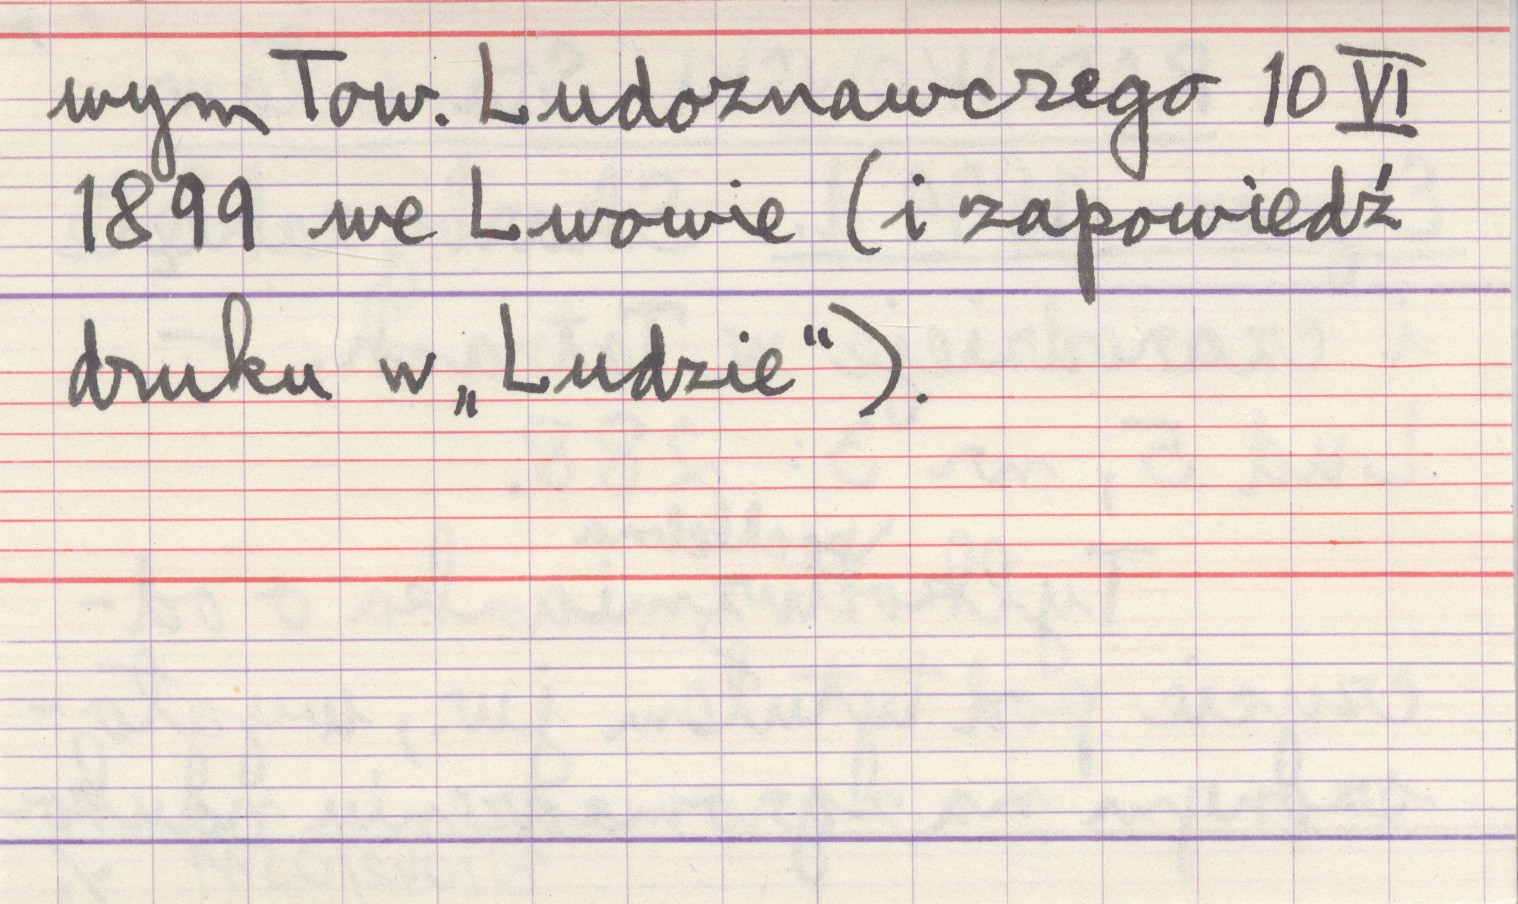 wym Tow. Ludoznawczego 10 VI
1899 we Lwowie (i zapowiedź
druku w „Ludzie“).